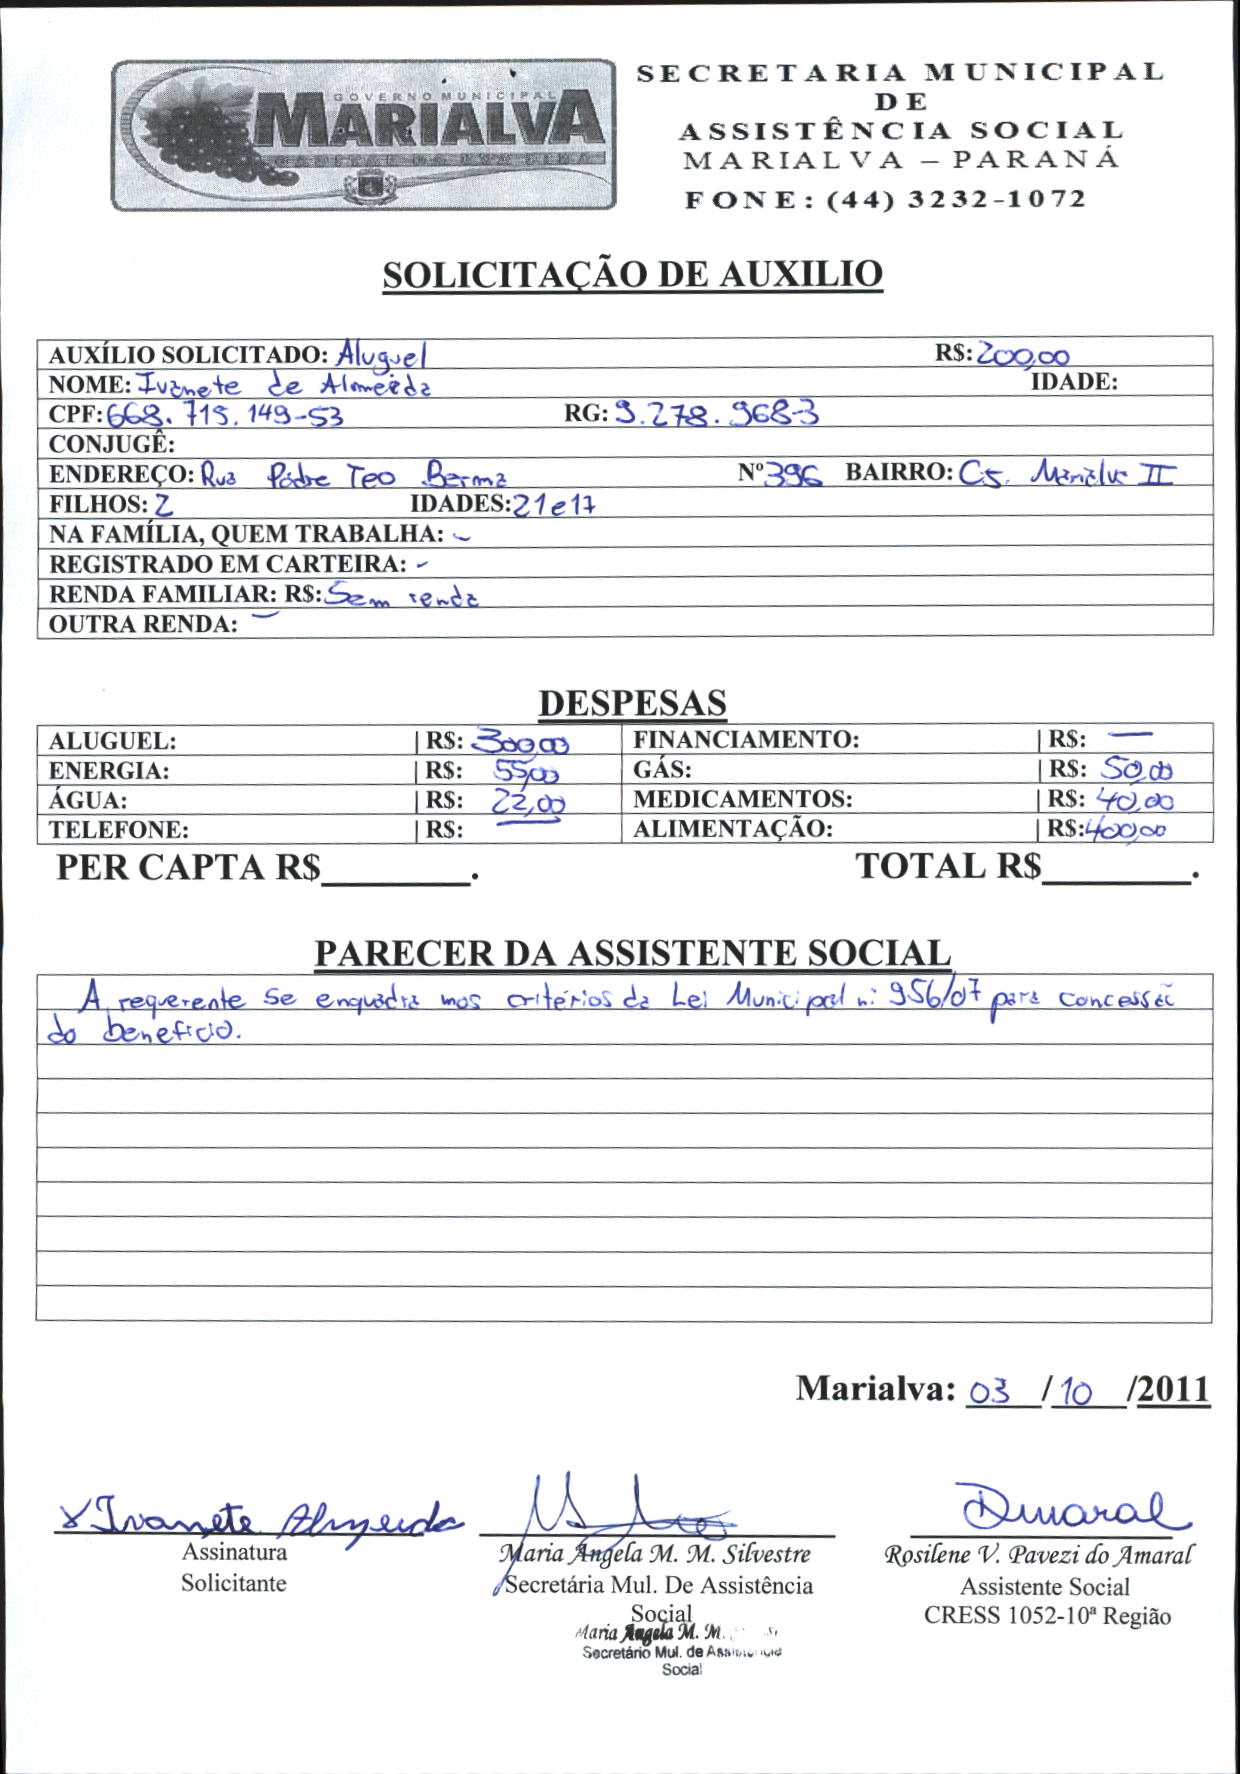 GOVERNO MUNICIPAL
MARIALVA
CAPITAL DA UVA FINA
SECRETARIA MUNICIPAL
DE
ASSISTÊNCIA SOCIAL
MARIALVA – PARANÁ
FONE: (44) 3232-1072
SOLICITAÇÃO DE AUXILIO
AUXÍLIO SOLICITADO: Aluguel R$: 200,00
NOME: Ivanete de Alemeida IDADE:
CPF: 668.715.149-53 RG: 9.278.968-3
CONJUGÊ:
ENDEREÇO: Rua Padre Teo Berma Nº 396 BAIRRO: Cj. Marialva II
FILHOS: 2 IDADES: 21 e 17
NA FAMÍLIA, QUEM TRABALHA: -
REGISTRADO EM CARTEIRA: -
RENDA FAMILIAR: R$: Sem renda
OUTRA RENDA: —
DESPESAS
ALUGUEL: | R$: 300,00 FINANCIAMENTO: | R$: —
ENERGIA: | R$: 55,00 GÁS: | R$: 50,00
ÁGUA: | R$: 22,00 MEDICAMENTOS: | R$: 40,00
TELEFONE: | R$: — ALIMENTAÇÃO: | R$: 400,00
PER CAPTA R$________. TOTAL R$________.
PARECER DA ASSISTENTE SOCIAL
A requerente se enquadra nos critérios da Lei Municipal nº 956/07 para concessão
do beneficio.
Marialva: 03 /10 /2011
x Ivanete Almeida
Amaral
Assinatura
Solicitante
Maria Ângela M. M. Silvestre
Secretária Mul. De Assistência
Social
Maria Angela M. M.
Secretário Mul. de Assistência
Social
Rosilene V. Pavezi do Amaral
Assistente Social
CRESS 1052-10ª Região